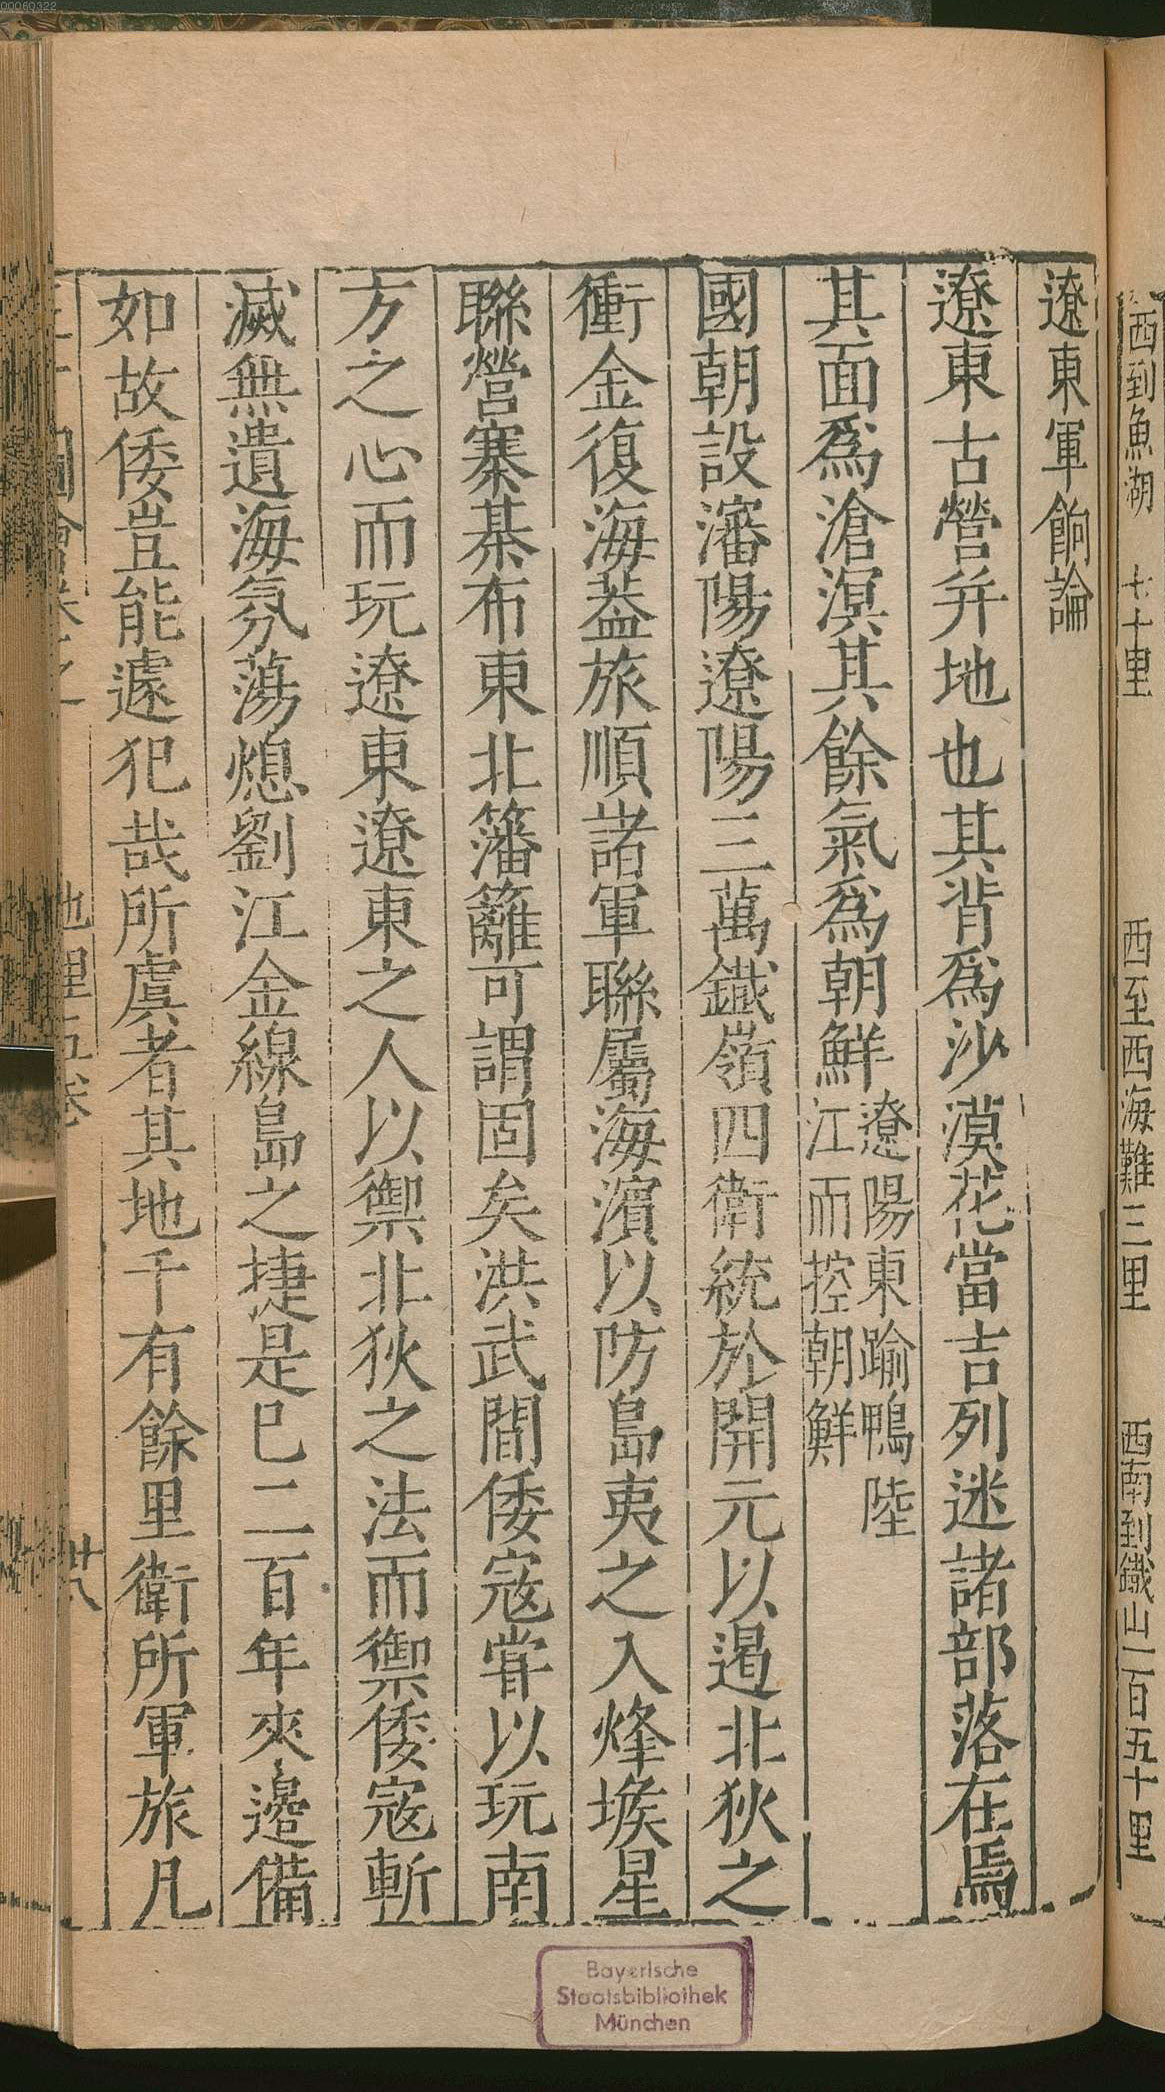 00060322
西到魚湖 七十里 西至西海難三里 西南到鐵山一百五十里
遼東軍餉論
遼東古營并地也其背爲沙漠花當吉列迷諸部落在焉
其面爲滄溟其餘氣爲朝鮮遼陽東踰鴨陸
江而控朝鮮
國朝設瀋陽遼陽三萬鐵嶺四衛統於開元以遏北狄之
衝金復海蓋旅順諸軍聯屬海濱以防島夷之入烽堠星
聯營寨棊布東北籓籬可謂固矣洪武間倭寇甞以玩南
方之心而玩遼東遼東之人以禦北狄之法而禦倭寇斬
滅無遺海氛蕩熄劉江金線島之捷是巳二百年來邊備
如故倭豈能遽犯哉所虞者其地千有餘里衛所軍旅凡
地理五卷 廿八
Bayerische
Staatsbibliothek
München